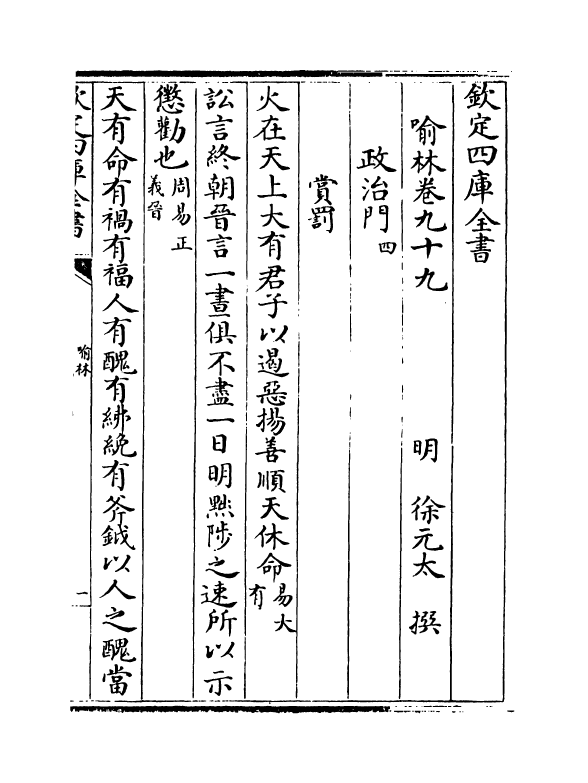 欽定四庫全書
喻林卷九十九　明　徐元太　撰
政治門四
賞罰
火在天上大有君子以遏惡揚善順天休命易大有
訟言終朝晉言一晝俱不盡一日明黜陟之速所以示
懲勸也周易正義晉
天有命有禍有福人有醜有紼絻有斧鉞以人之醜當
欽定四庫全書
喻林
一